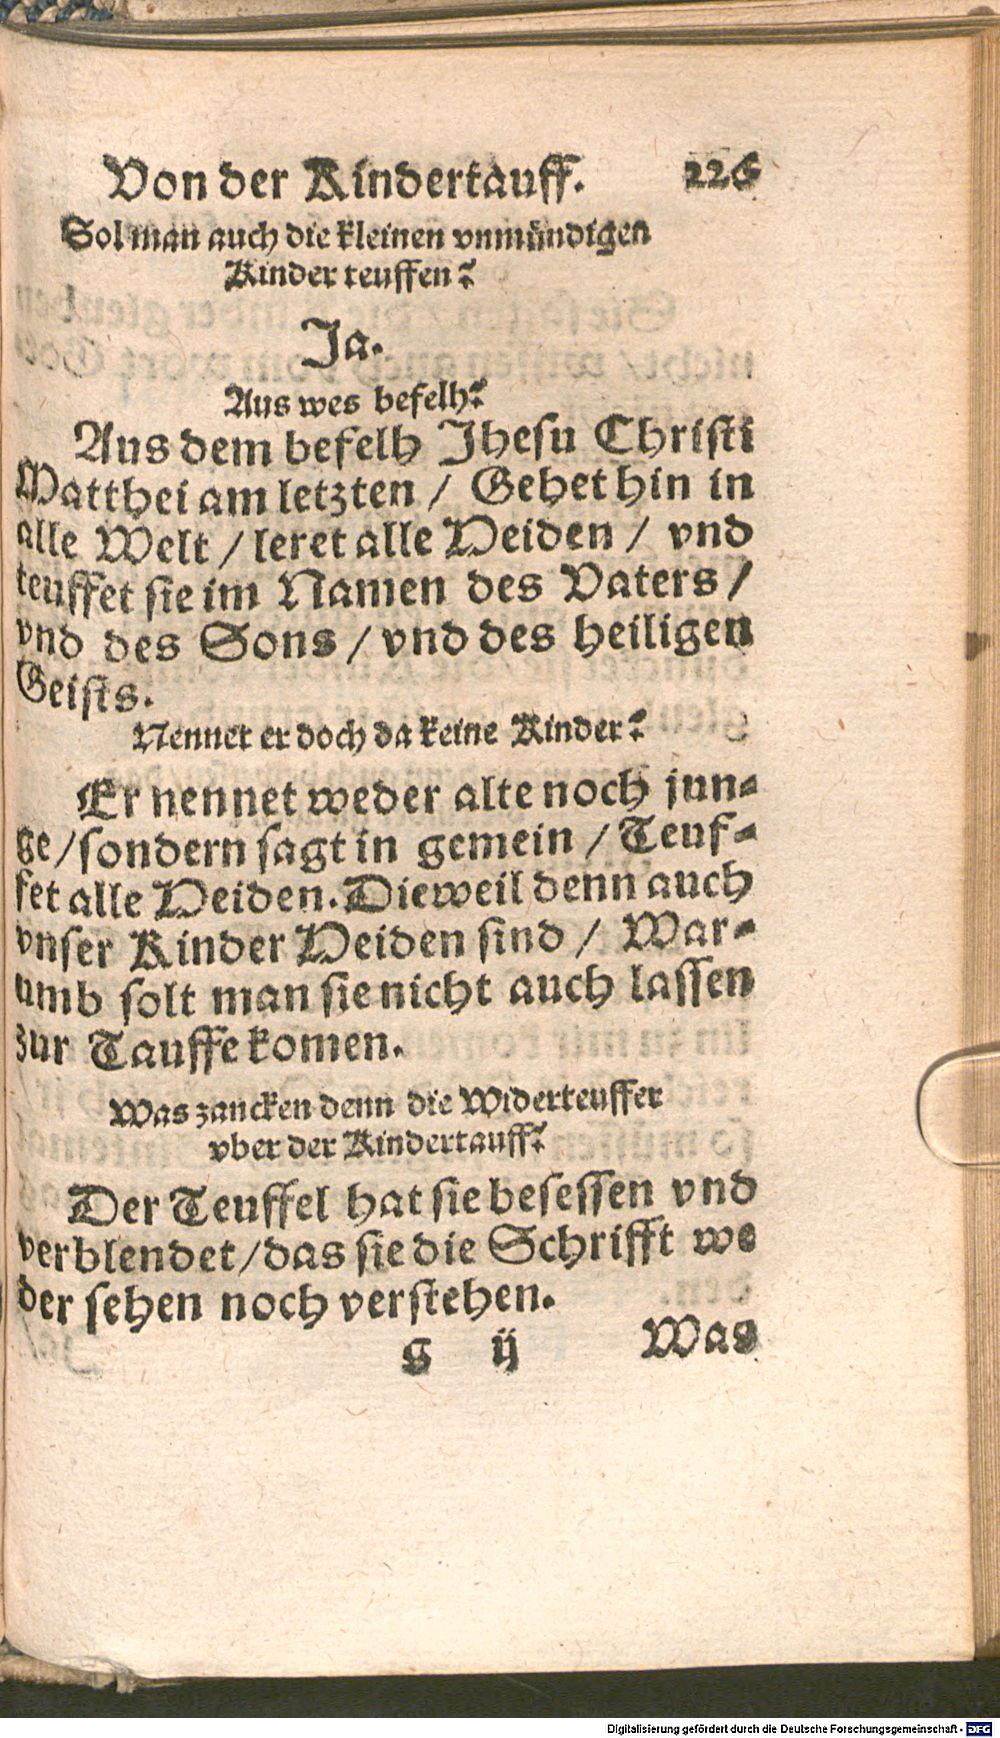 Von der Kindertauff. 226
Sol man auch die kleinen vnmündigen
Kinder teuffen?
Ja.
Aus wes befelh?
Aus dem befelh Jhesu Christi
Matthei am letzten / Gehet hin in
alle Welt / leret alle Heiden / vnd
teuffet sie im Namen des Vaters /
vnd des Sons / vnd des heiligen
Geists.
Nennet er doch da keine Kinder?
Er nennet weder alte noch jun-
ge / sondern sagt in gemein / Teuf-
fet alle Heiden. Dieweil denn auch
vnser Kinder Heiden sind / War-
umb solt man sie nicht auch lassen
zur Tauffe komen.
Was zancken denn die Widerteuffer
vber der Kindertauff?
Der Teuffel hat sie besessen vnd
verblendet / das sie die Schrifft we
der sehen noch verstehen.
g ij Was
Digitalisierung gefördert durch die Deutsche Forschungsgemeinschaft - DFG